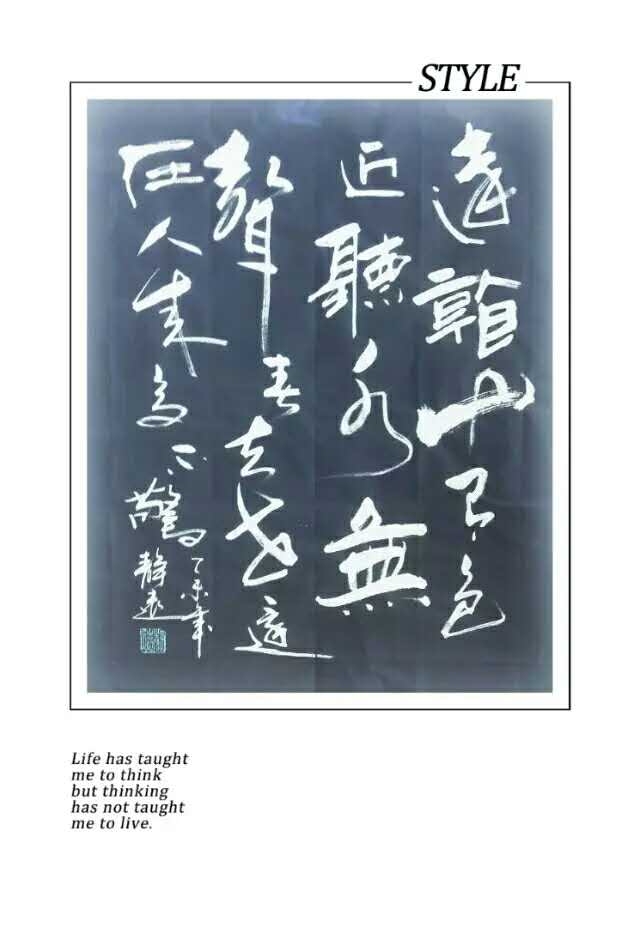 STYLE
遠看山有色
近聽水無
聲春去花還
在人來鳥不驚
丁未年
靜遠
Life has taught
me to think
but thinking
has not taught
me to live.